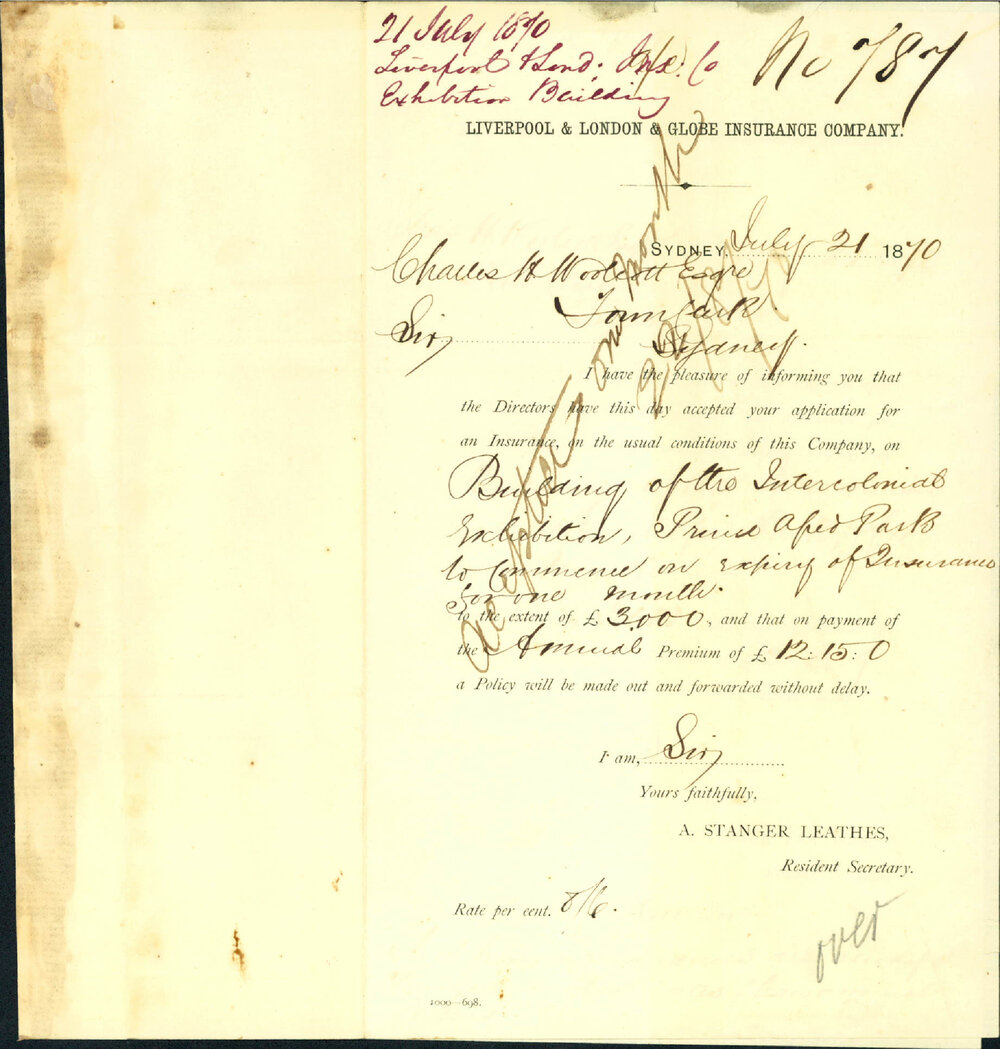 21 July 1870
Liverpool & Lond: Ins: Co
Exhibition Building
No 787
LIVERPOOL & LONDON & GLOBE INSURANCE COMPANY.
SYDNEY, July 21 1870
Charles H Woolcott Esqre
Town Clerk
Sir, Sydney.
I have the pleasure of informing you that
the Directors have this day accepted your application for
an Insurance, on the usual conditions of this Company, on
Building of the Intercolonial
Exhibition, Prince Alfred Park
to Commence on expiry of Insurance
for one month.
to the extent of £ 3,000, and that on payment of
the Annual Premium of £ 12:15:0
a Policy will be made out and forwarded without delay.
I am, Sir,
Yours faithfully,
A. STANGER LEATHES,
Resident Secretary.
Rate per cent. 8/6.
over
1000—698.
one month